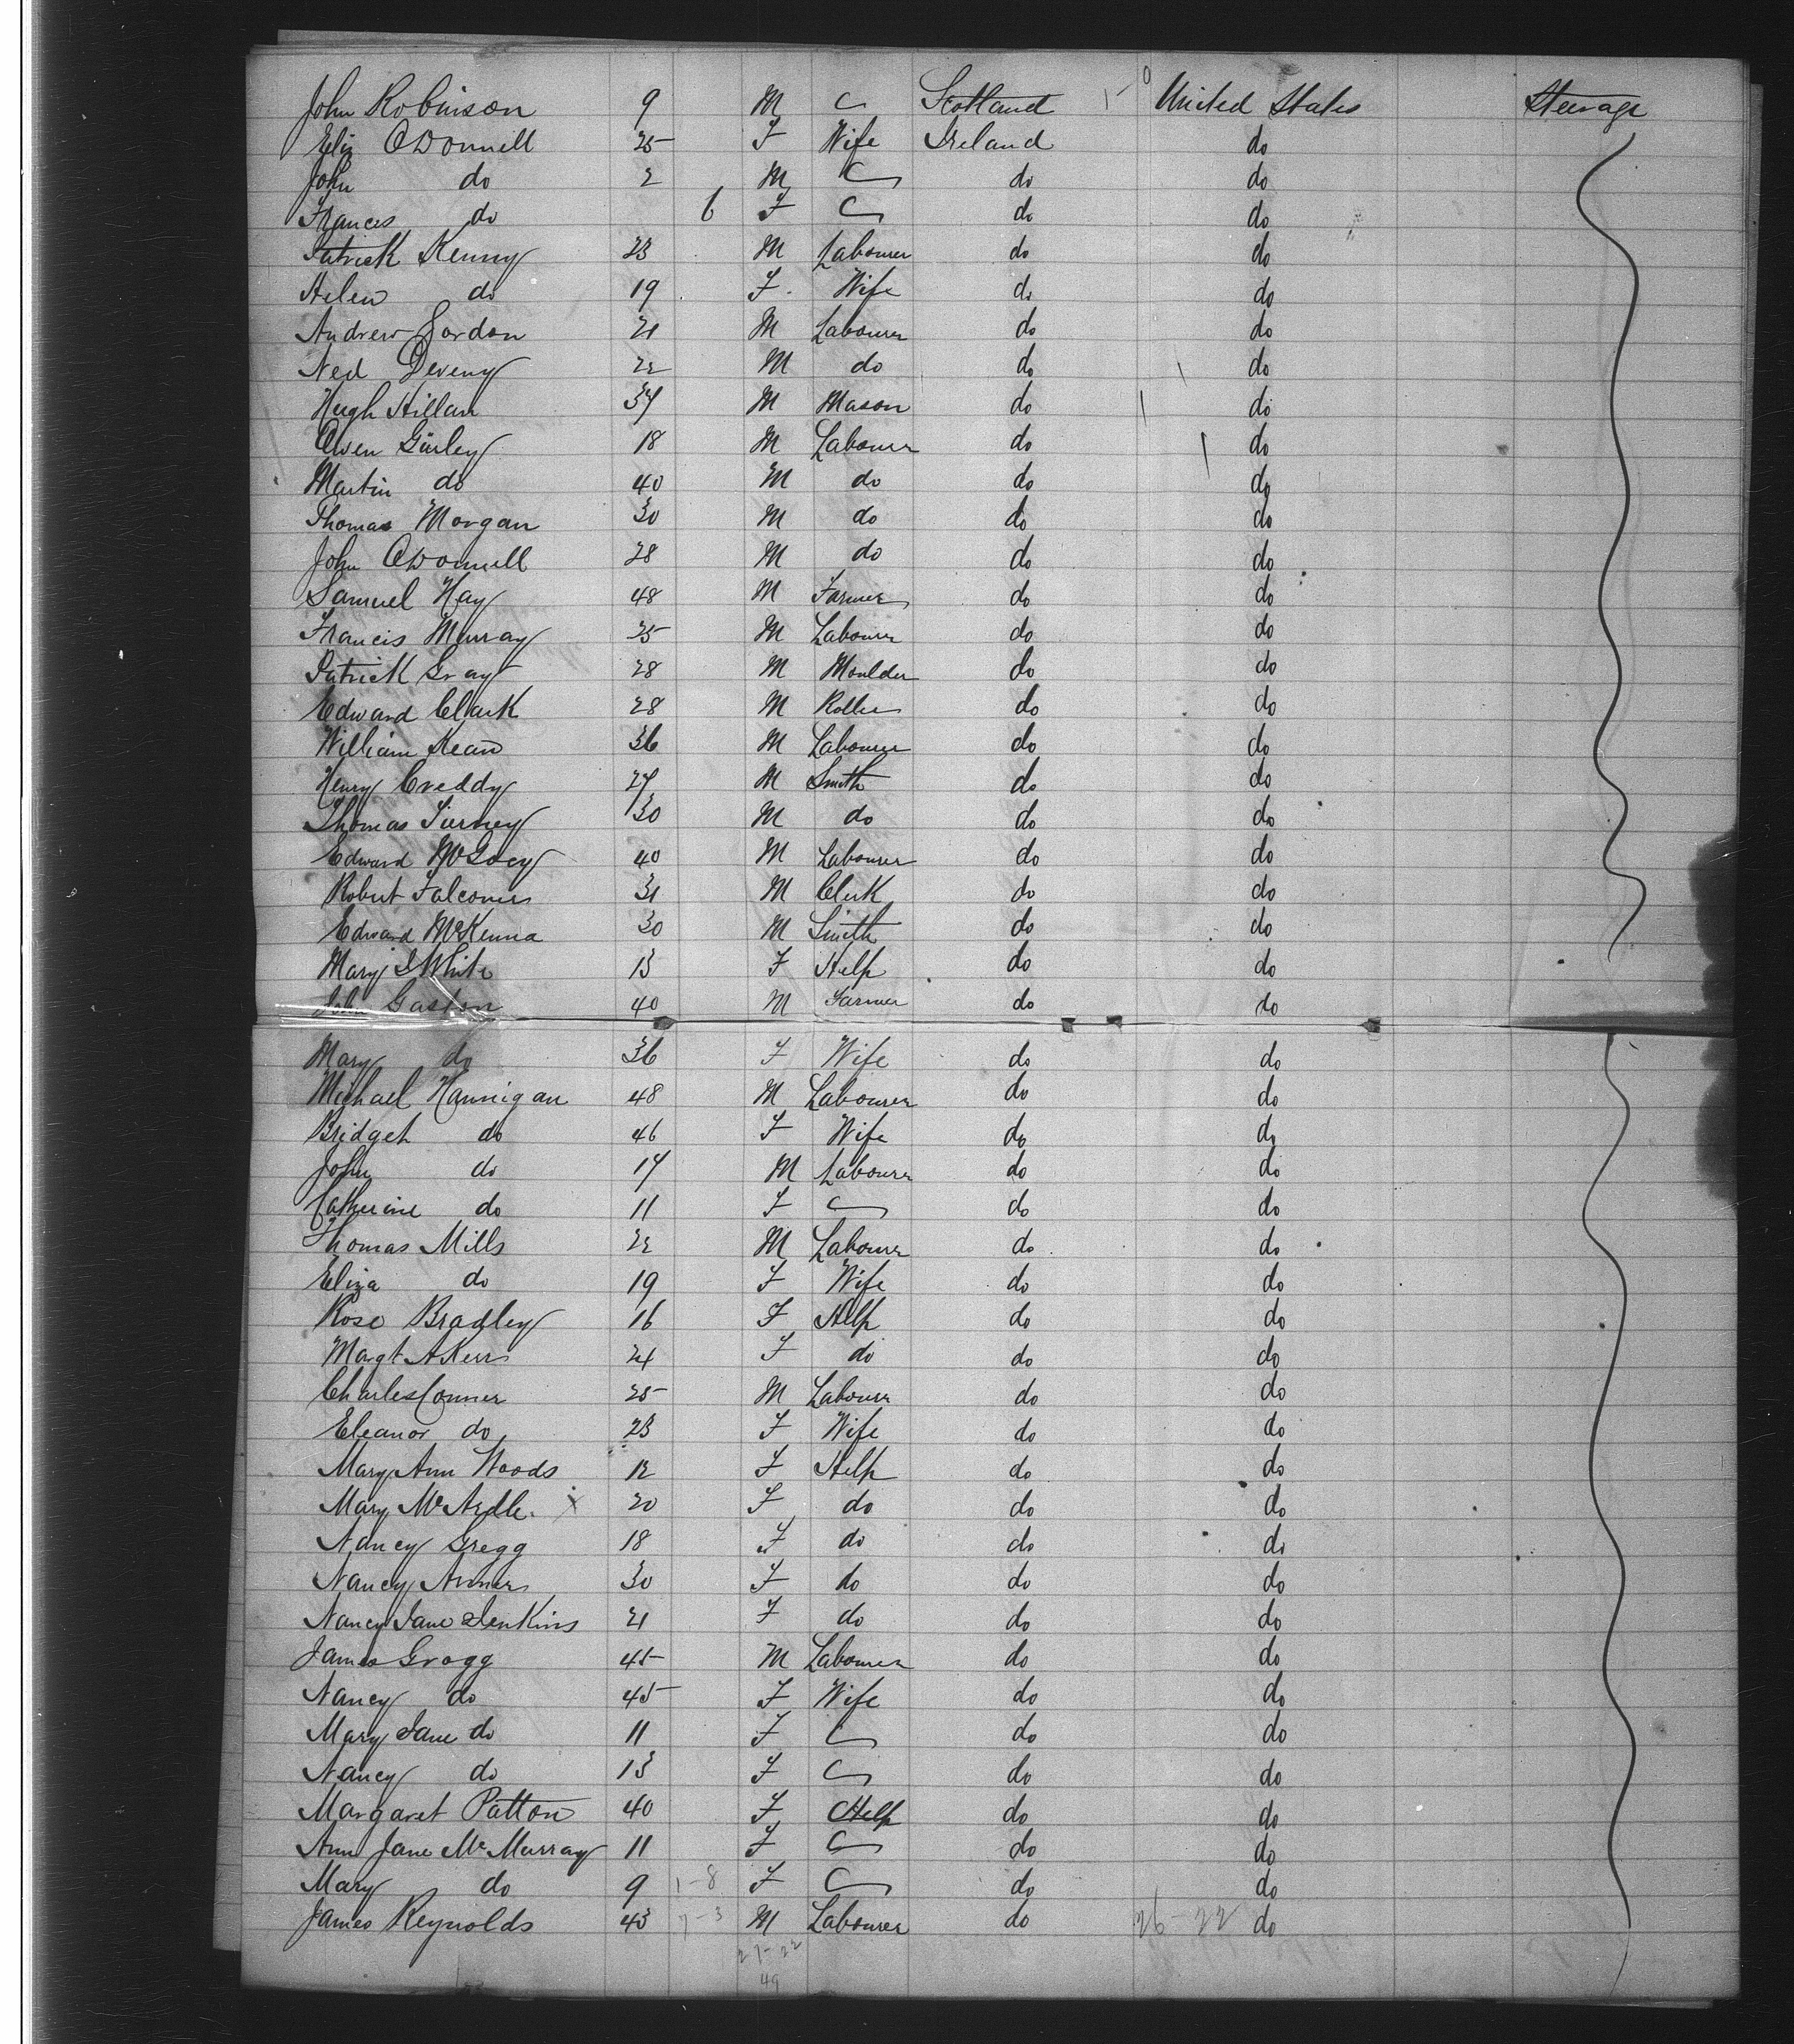 John Robinson 9 M C Scotland 1-0 United States Steerage
Eliz O'Donnell 25 F Wife Ireland do
John do 2 M C do do
Frances do 6 F C do do
Patrick Kenny 23 M Labourer do do
Helen do 19 F Wife do do
Andrew Gordon 21 M Labourer do do
Ned Deveny 22 M do do do
Hugh Hillan 37 M Mason do do
Owen Gurley 18 M Labourer do do
Martin do 40 M do do do
Thomas Morgan 30 M do do do
John O'Donnell 28 M do do do
Samuel Hay 48 M Farmer do do
Francis Murray 25 M Labourer do do
Patrick Gray 28 M Moulder do do
Edward Clark 28 M Roller do do
William Kean 36 M Labourer do do
Henry Creddy 27 M Smith do do
Thomas Tierney 30 M do do do
Edward 40 M Labourer do do
Robert Falconer 31 M Clerk do do
Edward McKenna 30 M Smith do do
Mary J White 13 F Help do do
John Gaston 40 M Farmer do do
Mary do 36 F Wife do do
Michael Hannigan 48 M Labourer do do
Bridget do 46 F Wife do do
John do 17 M Labourer do do
Catherine do 11 F C do do
Thomas Mills 22 M Labourer do do
Eliza do 19 F Wife do do
Rose Bradley 16 F Help do do
Margt A Kerr 21 F do do do
Charles Conner 25 M Labourer do do
Eleanor do 23 F Wife do do
Mary Ann Woods 12 F Help do do
Mary McArdle x 20 F do do do
Nancy Gregg 18 F do do do
Nancy 30 F do do do
Nancy Jane Jenkins 21 F do do do
James Gragg 45 M Labourer do do
Nancy do 45 F Wife do do
Mary Jane do 11 F C do do
Nancy do 13 F C do do
Margaret Patton 40 F Help do do
Ann Jane McMurray 11 F C do do
Mary do 9 1-8 F C do do
James Reynolds 43 7-3 M Labourer do 26-22 do
27-22
49